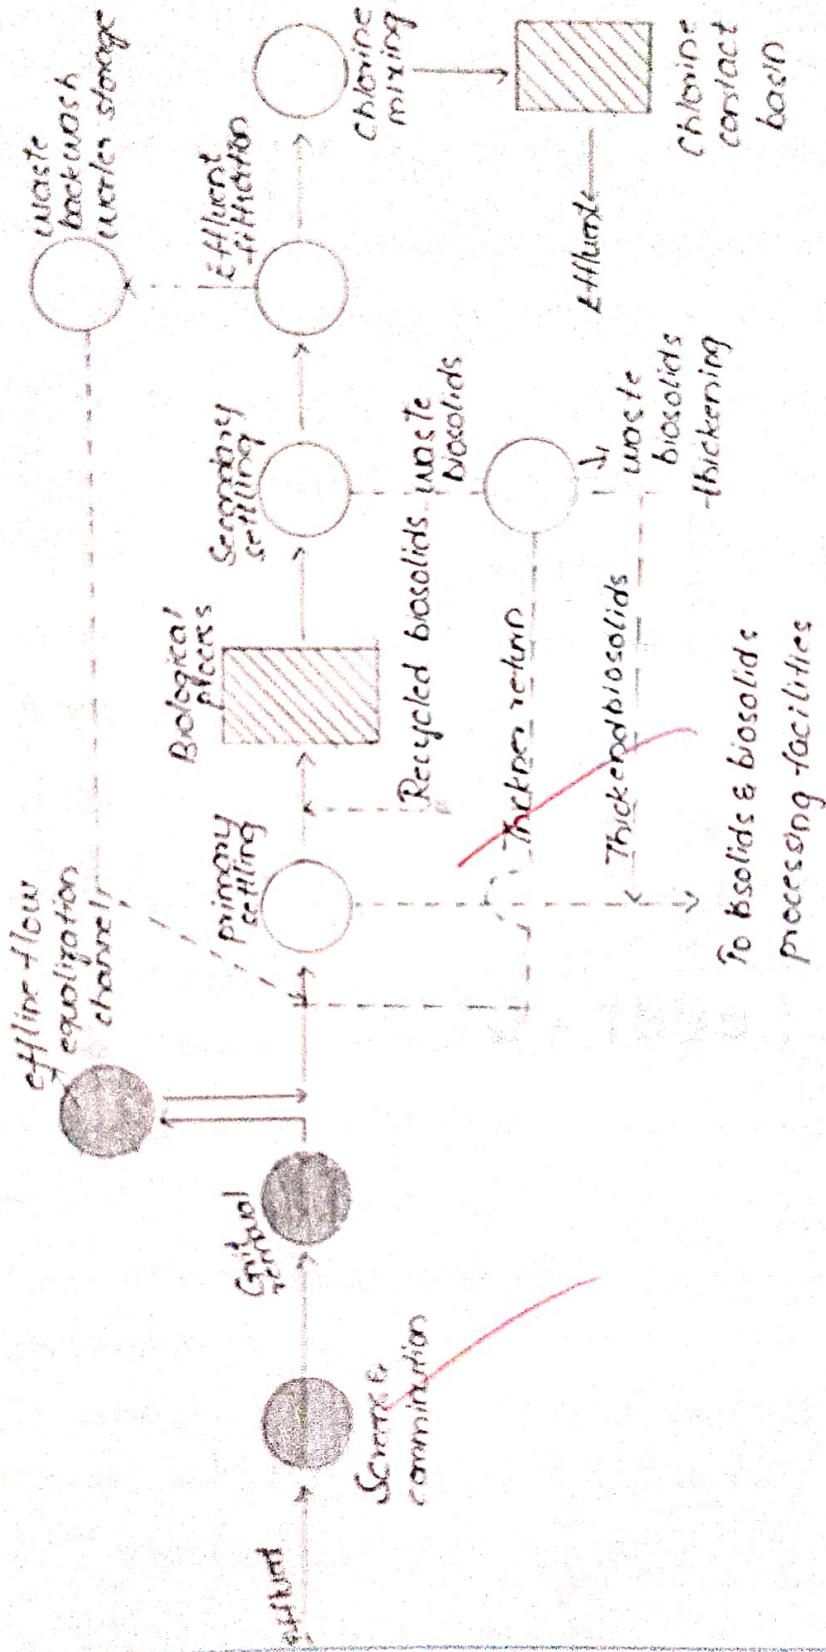 Effluent
Screens &
comminution
Grit
removal
offline flow
equalization
channel
primary
settling
Biological
process
Secondary
settling
Effluent
filtration
waste
backwash
water storage
Chlorine
mixing
Chlorine
contact
basin
Effluent
Recycled biosolids
waste
biosolids
Thickner return
waste
biosolids
thickening
Thickend biosolids
To bsolids & biosolids
processing facilities